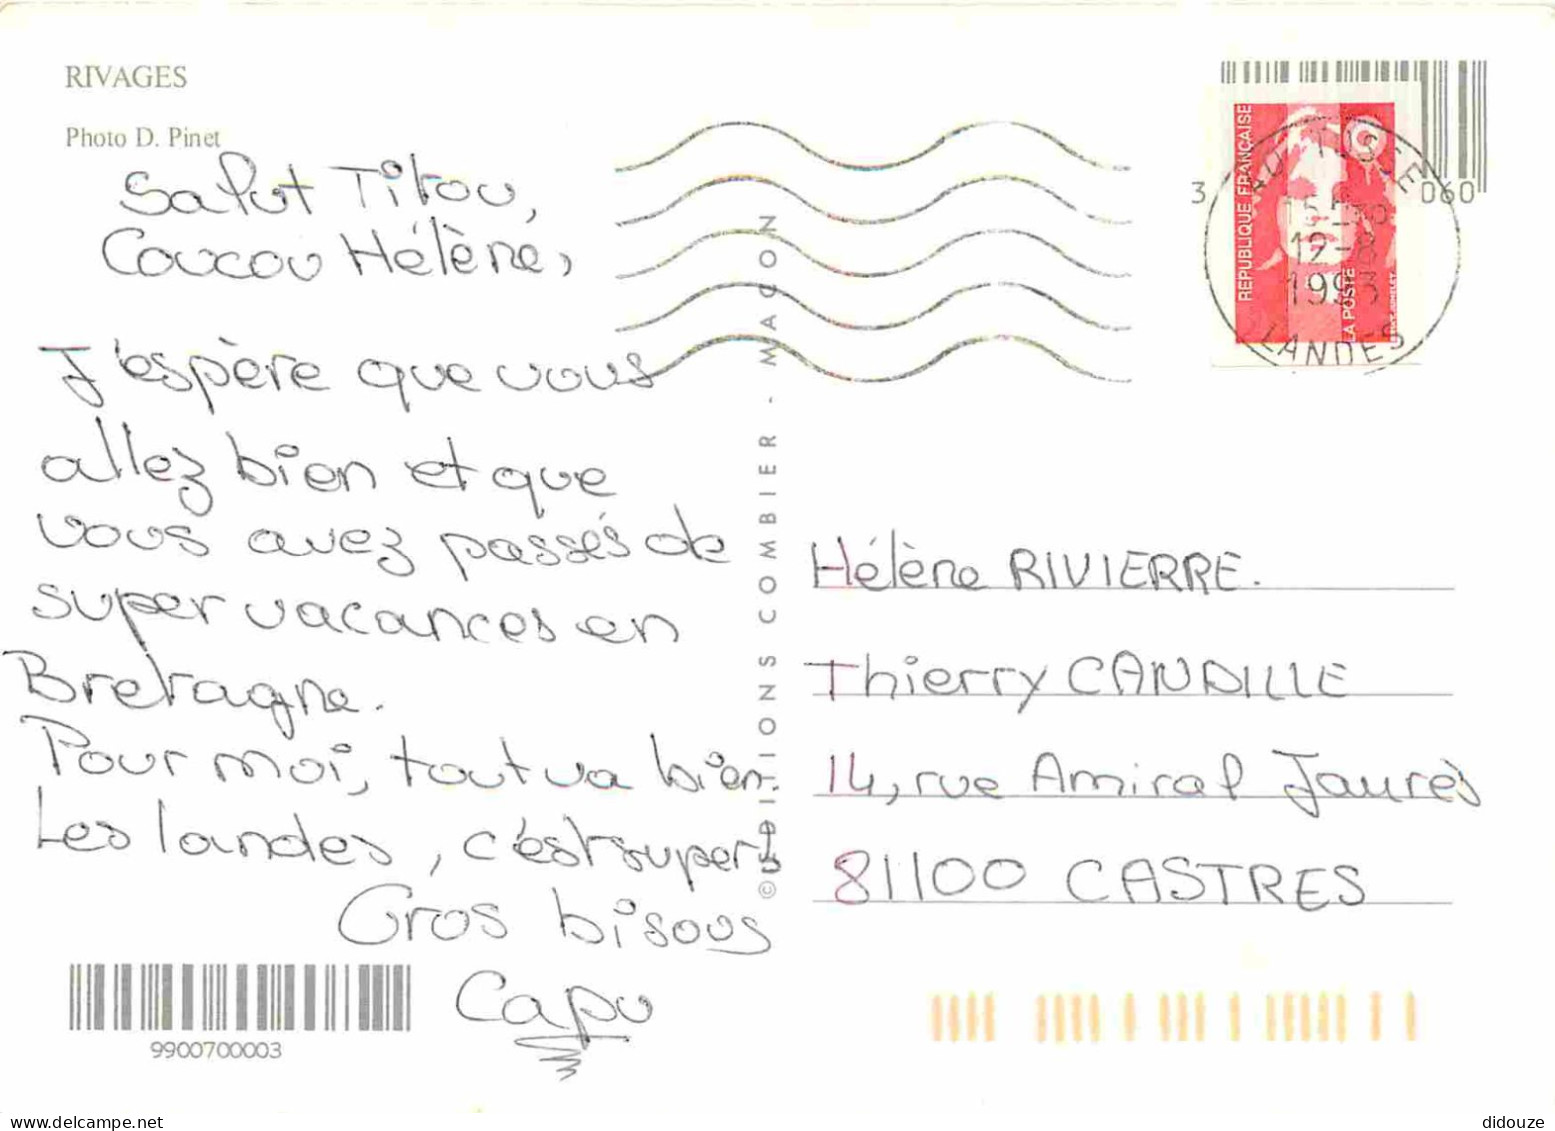 RIVAGES
Photo D. Pinet
Salut Titou,
Coucou Hélène,
J'espère que vous
allez bien et que
vous avez passés de
super vacances en
Bretagne.
Pour moi, tout va bien.
Les landes, c'est super!
Gros bisous
Capu
9900700003
© EDITIONS COMBIER - MACON
3
060
REPUBLIQUE FRANÇAISE
LA POSTE
12-8
1993
LANDES
Hélène RIVIERRE.
Thierry CANDILLE
14, rue Amiral Jaurès
81100 CASTRES
didouze